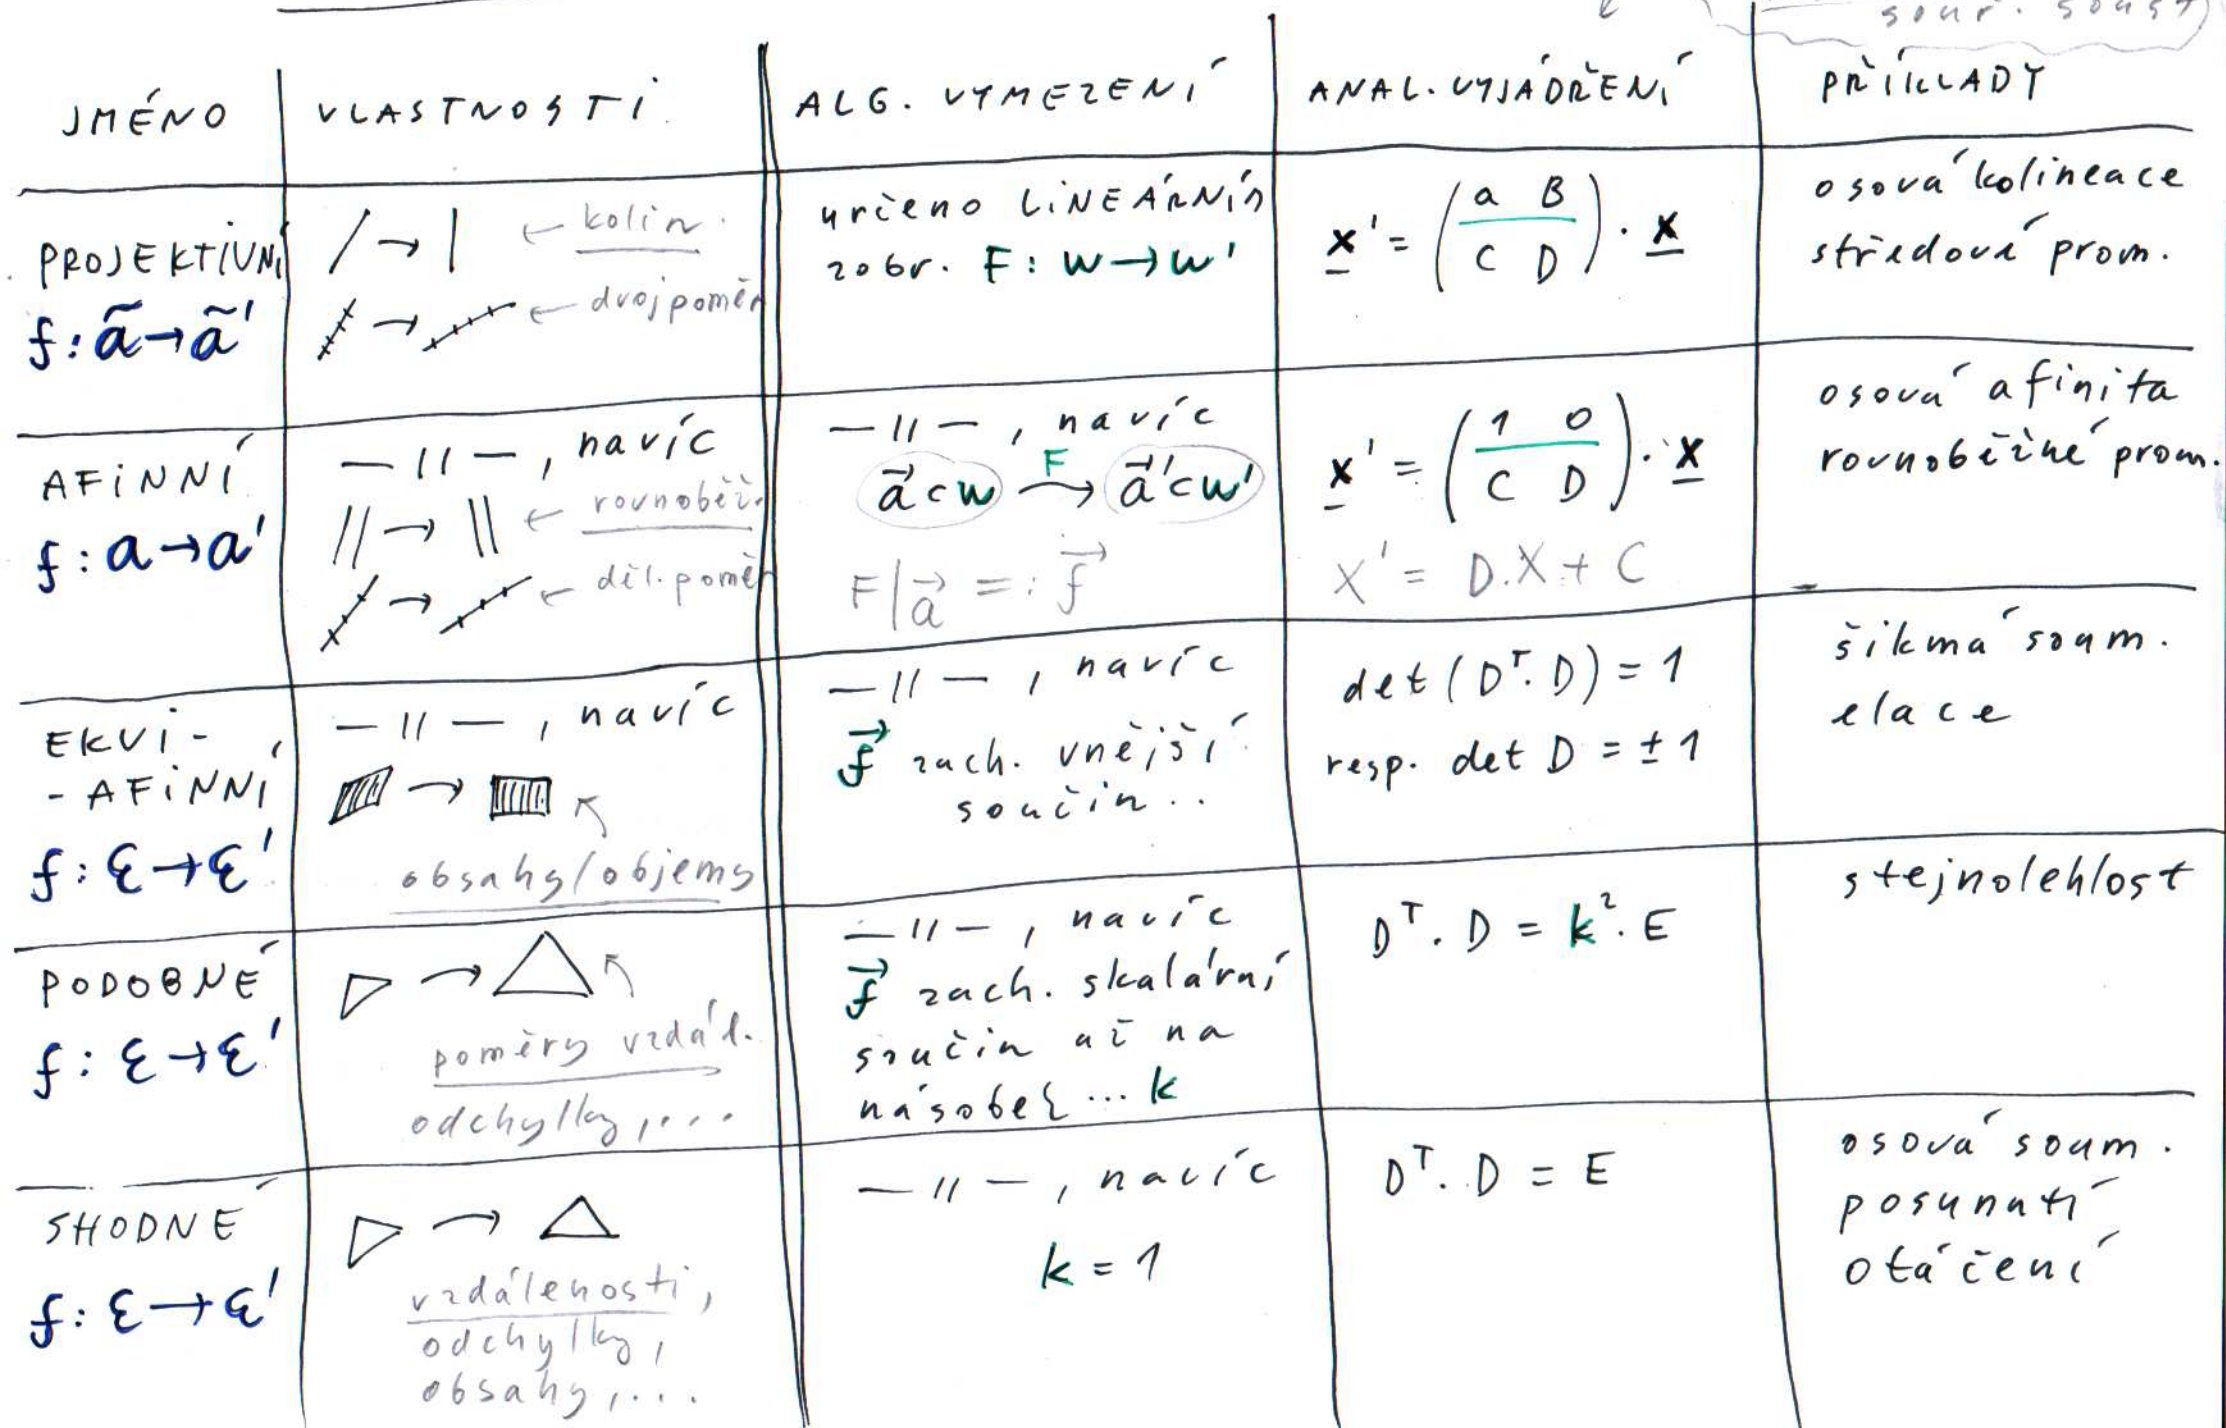 souř. soust
JMÉNO
VLASTNOSTI
ALG. VYMEZENÍ
ANAL. VYJÁDŘENÍ
PŘÍKLADY
PROJEKTIVNÍ
f: ã → ã'
← kolin.
← dvojpoměr
určeno LINEÁRNÍM
zobr. F: W → W'
x' = (a B / C D) · x
osová kolineace
středové prom.
AFINNÍ
f: a → a'
—〃—, navíc
|| → || ← rovnoběž.
← děl. poměr
—〃—, navíc
a⃗ ⊂ W →F a⃗' ⊂ W'
F|a⃗ =: f⃗
x' = (1 0 / C D) · x
X' = D.X + C
osová afinita
rovnoběžné prom.
EKVI-
-AFINNÍ
f: ℰ → ℰ'
—〃—, navíc
obsahy/objemy
—〃—, navíc
f⃗ zach. vnější
součin..
det(Dᵀ. D) = 1
resp. det D = ±1
šikmá soum.
elace
PODOBNÉ
f: ℰ → ℰ'
poměry vzdál.
odchylky,...
—〃—, navíc
f⃗ zach. skalární
součin až na
násobek ... k
Dᵀ. D = k². E
stejnolehlost
SHODNÉ
f: ℰ → ℰ'
vzdálenosti,
odchylky,
obsahy,...
—〃—, navíc
k = 1
Dᵀ. D = E
osová soum.
posunutí
otáčení